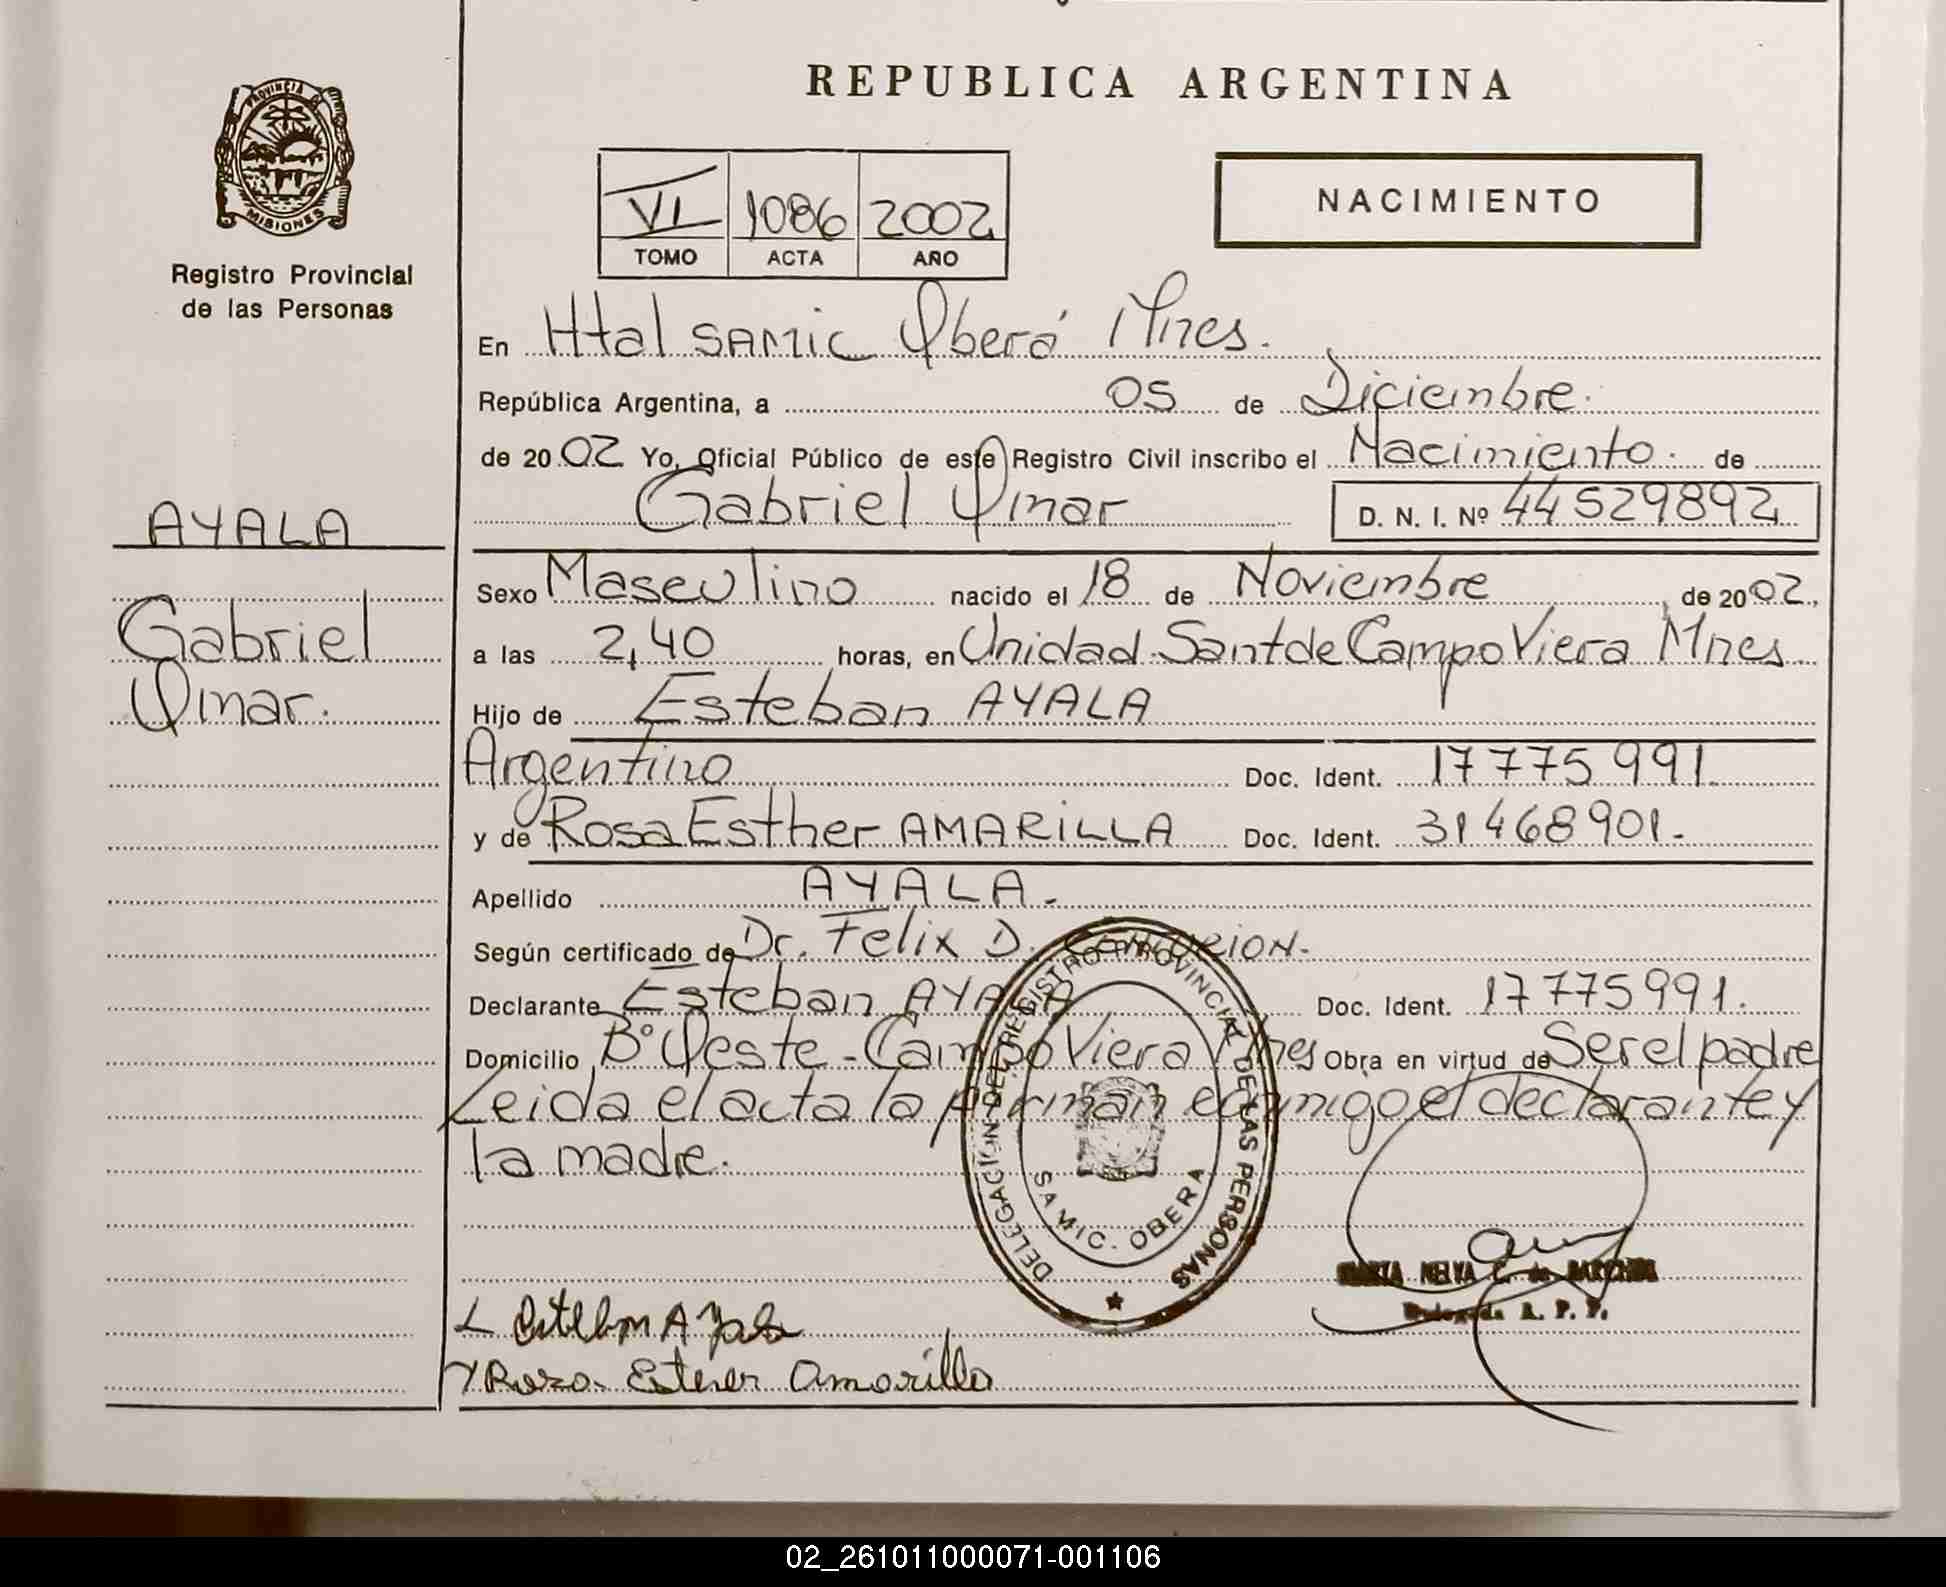 REPUBLICA ARGENTINA
PROVINCIA DE MISIONES
Registro Provincial
de las Personas
VI 1086 2002
TOMO ACTA AÑO
NACIMIENTO
AYALA
Gabriel
Omar.
En Htal SAMIC Oberá Mnes.
República Argentina, a 05 de Diciembre.
de 2002 Yo, Oficial Público de este Registro Civil inscribo el Nacimiento. de
Gabriel Omar D. N. I. Nº 44529892
Sexo Masculino nacido el 18 de Noviembre de 2002,
a las 2,40 horas, en Unidad Sanit de Campo Viera Mnes
Hijo de Esteban AYALA
Argentino Doc. Ident. 17775991.
y de Rosa Esther AMARILLA Doc. Ident. 31468901.-
Apellido AYALA.-
Según certificado de Dr. Felix D.
Declarante Esteban AYALA Doc. Ident. 17775991.
Domicilio Bº Oeste - Campo Viera Mnes Obra en virtud de Ser el padre
Leida el acta la firman conmigo el declarante y
la madre.
DELEGACION DEL REGISTRO PROVINCIAL DE LAS PERSONAS
SAMIC. OBERA
NELVA C. de
Delegada R. P. P.
Esteban Ayala
Rosa Ester Amarilla
02_261011000071-001106